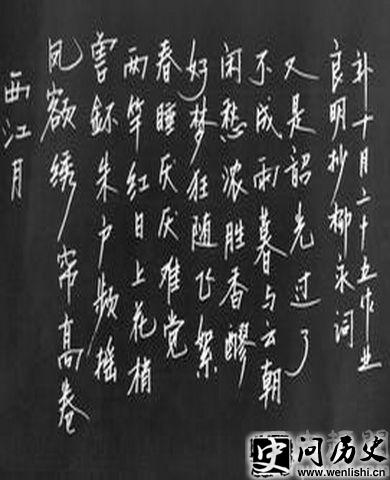 西江月
凤额绣帘高卷
兽朱户频摇
两竿红日上花梢
春睡厌厌难觉
好梦狂随飞絮
闲愁浓胜香醪
不成雨暮与云朝
又是韶光过了
良明抄柳永词
补十月二十五作业
史
问历史
www.wenlishi.com